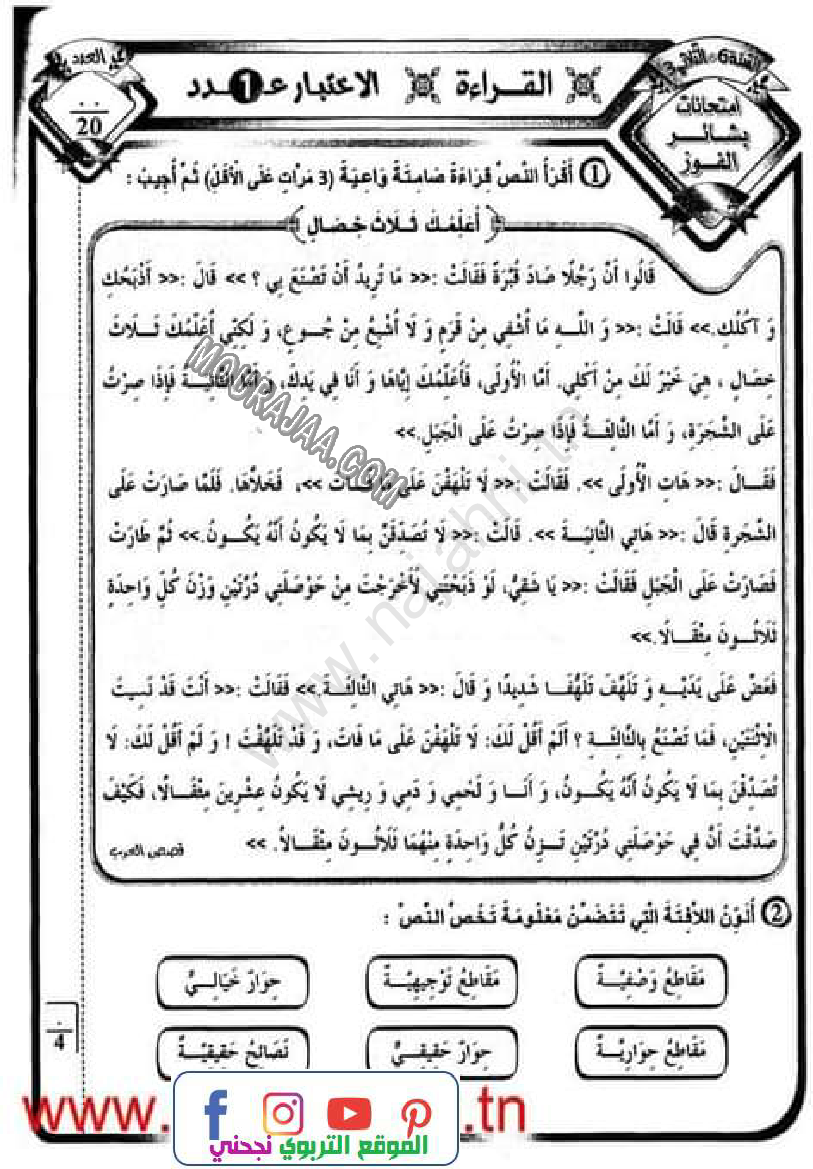 السنة 6 - الثلاثي 3
امتحانات
بشائر
الفوز
القراءة الاختبار عـ1ـدد
العدد
..
20
1 أَقْرَأُ النَّصَّ قِرَاءَةً صَامِتَةً وَاعِيَةً (3 مَرَّاتٍ عَلَى الْأَقَلِّ) ثُمَّ أُجِيبُ :
أُعَلِّمُكَ ثَلَاثَ خِصَالٍ
قَالُوا أَنَّ رَجُلًا صَادَ قُبَّرَةً فَقَالَتْ :<< مَا تُرِيدُ أَنْ تَصْنَعَ بِي ؟ >> قَالَ :<< أَذْبَحُكِ
وَ آكُلُكِ.>> قَالَتْ :<< وَ اللَّـهِ مَا أُشْفِي مِنْ قَرَمٍ وَ لَا أُشْبِعُ مِنْ جُـوعٍ، وَ لَكِنِّي أُعَلِّمُكَ ثَـلَاثَ
خِصَالٍ ، هِيَ خَيْرٌ لَكَ مِنْ أَكْلِي. أَمَّا الْأُولَى، فَأُعَلِّمُكَ إِيَّاهَا وَ أَنَا فِي يَدِكَ، وَ أَمَّا الثَّانِيَـةُ فَإِذَا صِرْتُ
عَلَى الشَّجَرَةِ، وَ أَمَّا الثَّالِثَـةُ فَإِذَا صِرْتُ عَلَى الْجَبَلِ.>>
فَقَـالَ :<< هَاتِ الْأُولَى >>. فَقَالَتْ :<< لَا تَلْهَفَنَّ عَلَى مَا فَـاتَ >>، فَخَلَّاهَا. فَلَمَّا صَارَتْ عَلَى
الشَّجَرَةِ قَالَ :<< هَاتِي الثَّانِيَـةَ >>. قَالَتْ :<< لَا تُصَدِّقَنَّ بِمَا لَا يَكُونُ أَنَّهُ يَكُـونُ.>> ثُمَّ طَارَتْ
فَصَارَتْ عَلَى الْجَبَلِ فَقَالَتْ :<< يَا شَقِيُّ، لَوْ ذَبَحْتَنِي لَأَخْرَجْتَ مِنْ حَوْصَلَتِي دُرَّتَيْنِ وَزْنُ كُلِّ وَاحِدَةٍ
ثَلَاثُـونَ مِثْقَـالًا.>>
فَعَضَّ عَلَى يَدَيْـهِ وَ تَلَهَّفَ تَلَهُّفًـا شَدِيدًا وَ قَالَ :<< هَاتِي الثَّالِثَـةَ.>> فَقَالَتْ :<< أَنْتَ قَدْ نَسِيتَ
الِاثْنَتَيْنِ، فَمَا تَصْنَعُ بِالثَّالِثَـةِ ؟ أَلَمْ أَقُلْ لَكَ: لَا تَلْهَفَنَّ عَلَى مَا فَاتَ، وَ قَدْ تَلَهَّفْتَ ! وَ لَمْ أَقُلْ لَكَ: لَا
تُصَدِّقَنَّ بِمَا لَا يَكُونُ أَنَّهُ يَكُـونُ، وَ أَنَـا وَ لَحْمِي وَ دَمِي وَ رِيشِي لَا يَكُونُ عِشْرِينَ مِثْقَـالًا، فَكَيْفَ
صَدَّقْتَ أَنَّ فِي حَوْصَلَتِي دُرَّتَيْنِ تَـزِنُ كُلُّ وَاحِدَةٍ مِنْهُمَا ثَلَاثُـونَ مِثْقَـالًا. >>
قصص العرب
2 أُلَوِّنُ اللَّافِتَةَ الَّتِي تَتَضَمَّنُ مَعْلُومَةً تَخُصُّ النَّصَّ :
مَقَاطِعُ وَصْفِيَّـةٌ
مَقَاطِعُ تَوْجِيهِيَّـةٌ
حِوَارٌ خَيَالِـيٌّ
مَقَاطِعُ حِوَارِيَّـةٌ
حِوَارٌ حَقِيقِـيٌّ
نَصَائِحُ حَقِيقِيَّـةٌ
.
4
MOURAJAA.COM
www.najahni.tn
www.
.tn
الموقع التربوي نجحني